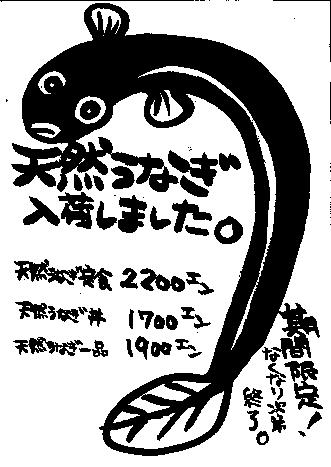 天然うなぎ
入荷しました。
天然うなぎ定食 2200エン
天然うなぎ丼 1700エン
天然うなぎ一品 1900エン
期間限定！
なくなり次第
終了。